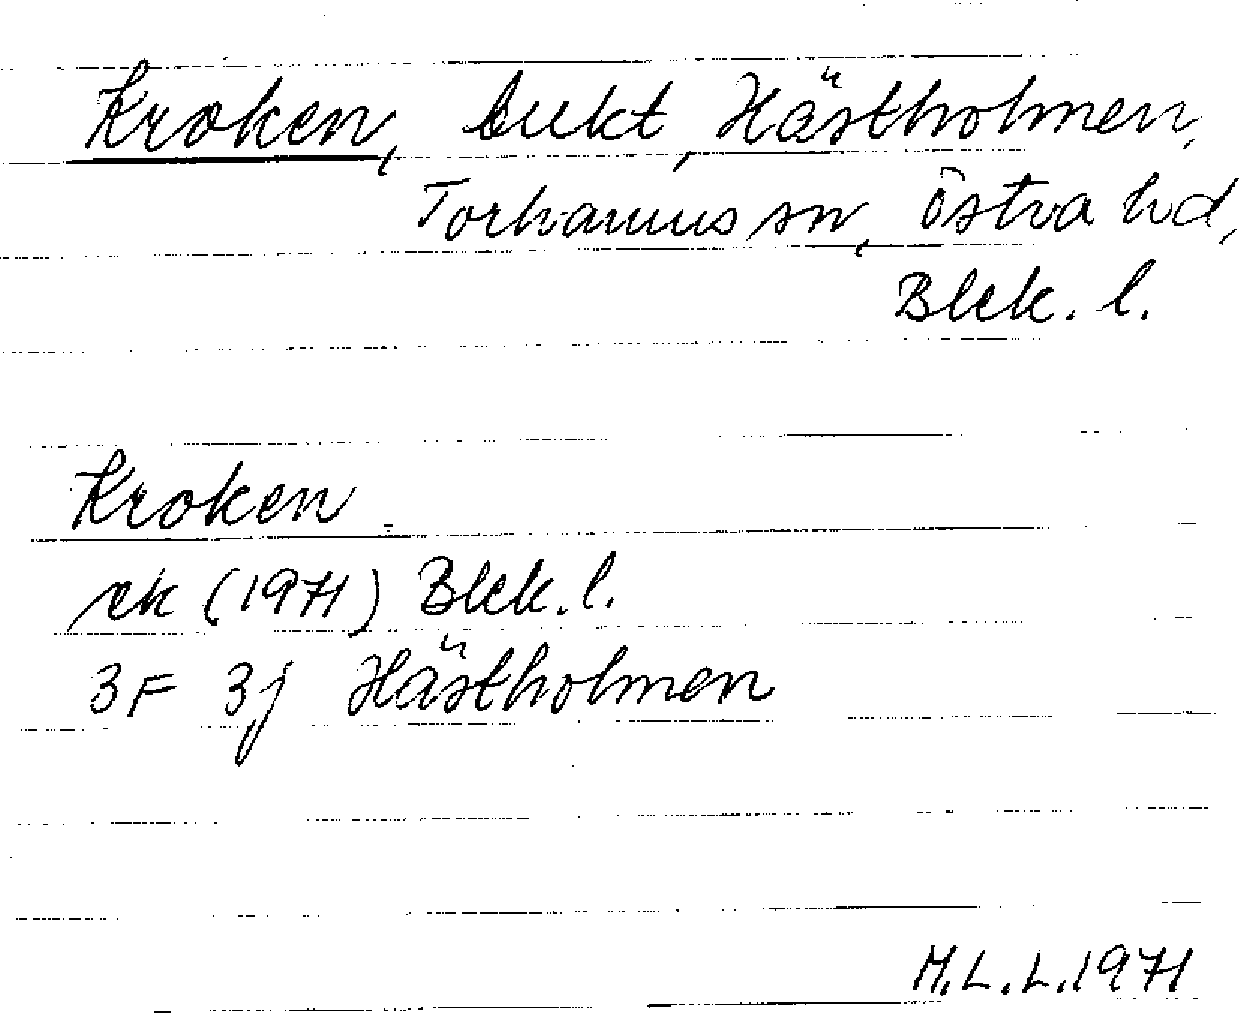 Kroken, bukt, Hästholmen,
Torhamns sn, Östra hd,
Blek. l.
Kroken
ek (1971) Blek. l.
3F 3j Hästholmen
M.L.L. 1971